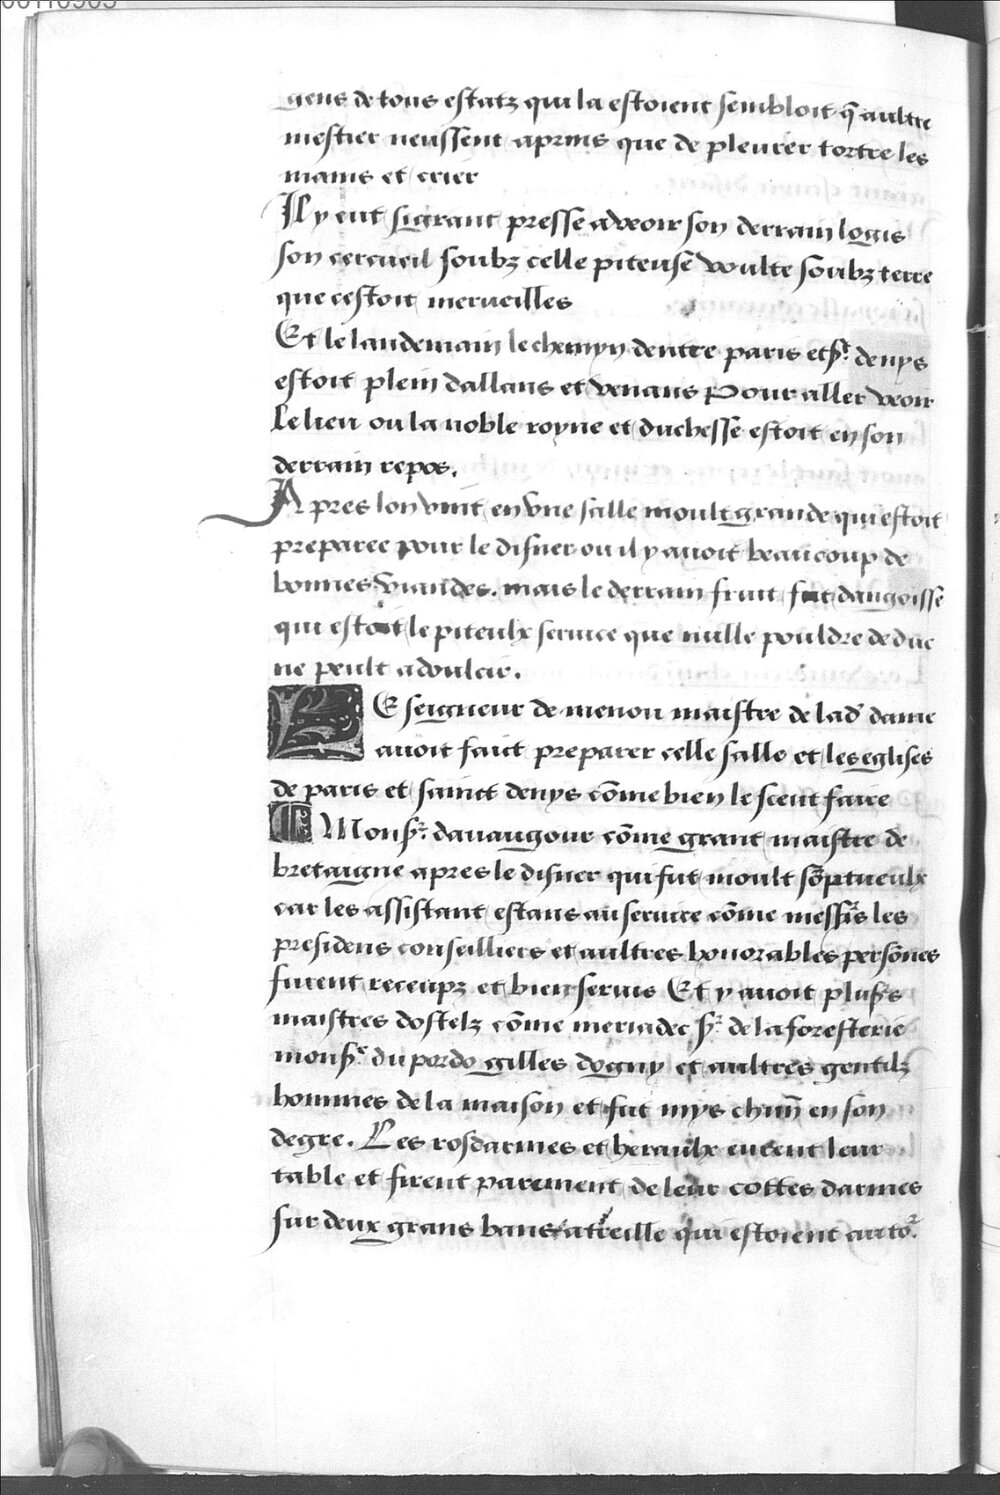 00110905
gens de tous estatz qui la estoient sembloit q̃ aultre
mestier neussent aprins que de pleurer tortre les
mains et crier
Il y eut si grant presse a veoir son derrain logis
son cercueil soubz celle piteuse voulte soubz terre
que cestoit merueilles
Et le landemain le chemyn dentre paris et sr. denys
estoit plein dallans et venans Pour aller veoir
Le lieu ou la noble royne et duchesse estoit en son
derrain repos.
Apres lon vint en vne salle moult grande qui estoit
preparee pour le disner ou il y auoit beaucoup de
bonnes viandes. mais le derrain fruit fut dangoisse
qui estoit le piteulx seruice que nulle pouldre de duc
ne peult adoulcir.
LE seigneur de menou maistre de lad dame
auoit faict preparer celle salle et les eglises
de paris et sainct denys cõme bien le sceut faire
Monsr. dauaugour cõme grant maistre de
bretaigne apres le disner qui fut moult sõptueulx
car les assistant estans au seruice cõme messrs les
presidens conseilliers et aultres honorables persõnes
furent receupz et bien seruis Et y auoit plusrs
maistres dostelz cõme meriadec sr. de la foresterie
monsr. du pordo gilles dogny et aultres gentilz
hommes de la maison et fut mys chũn en son
degre. Les roys darmes et heraulx eurent leur
table et firent parement de leur cottes darmes
sur deux grans bans a treille qui estoient autor.